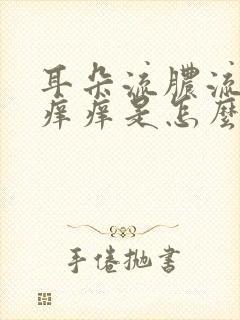 耳朵流膿流
痒痒是怎麼
手倦抛書